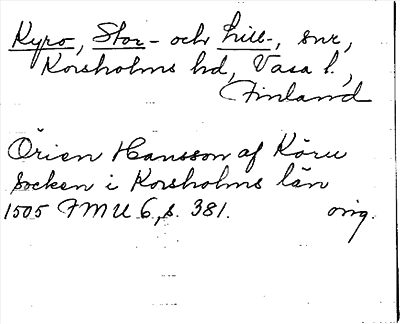 Kyro, Stor- och Lill-, snr,
Korsholms hd, Vasa l.,
Finland
Örien Hansson af Köru
socken i Korsholms län
1505 FMU 6, s. 381. orig.